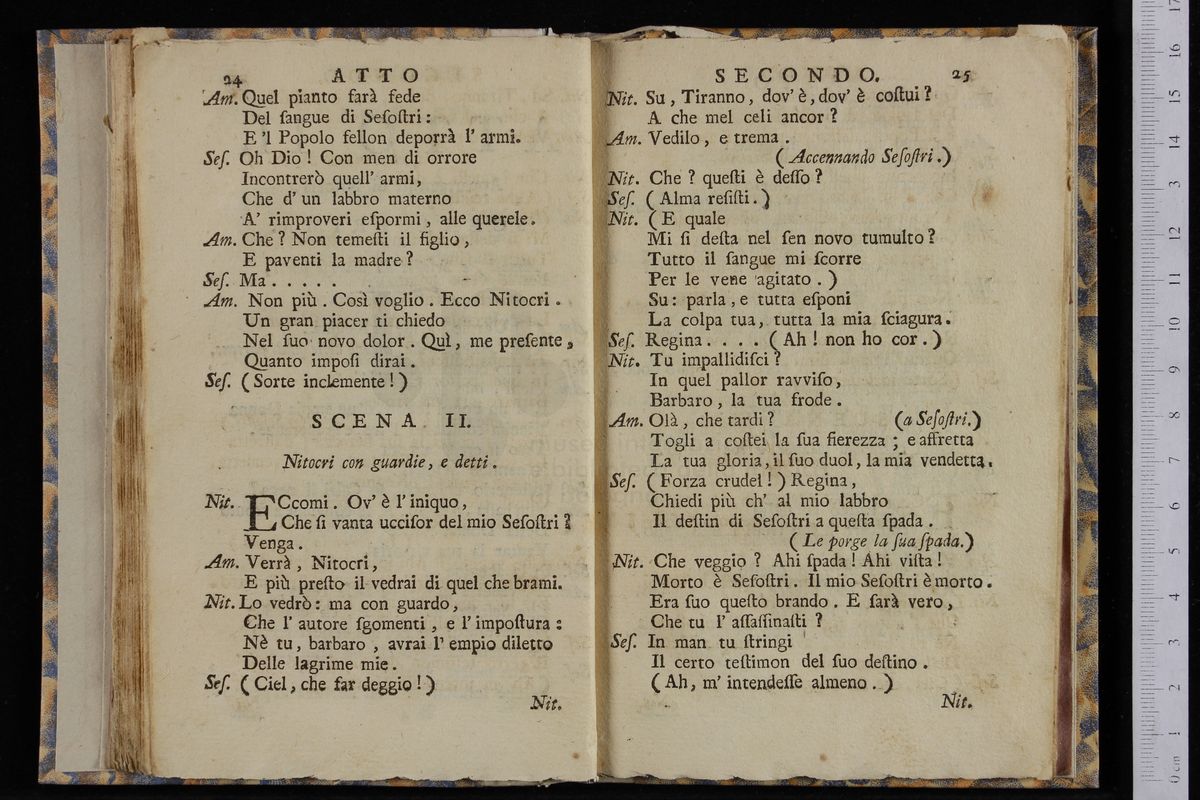 24 ATTO
Am. Quel pianto farà fede
Del ſangue di Seſoſtri:
E 'l Popolo fellon deporrà l' armi.
Seſ. Oh Dio! Con men di orrore
Incontrerò quell' armi,
Che d' un labbro materno
A' rimproveri eſpormi, alle querele.
Am. Che? Non temeſti il figlio,
E paventi la madre?
Seſ. Ma.....
Am. Non più. Così voglio. Ecco Nitocri.
Un gran piacer ti chiedo
Nel ſuo novo dolor. Quì, me preſente,
Quanto impoſi dirai.
Seſ. (Sorte inclemente!)
SCENA II.
Nitocri con guardie, e detti.
Nit. ECcomi. Ov' è l' iniquo,
Che ſi vanta ucciſor del mio Seſoſtri?
Venga.
Am. Verrà, Nitocri,
E più preſto il vedrai di quel che brami.
Nit. Lo vedrò: ma con guardo,
Che l' autore ſgomenti, e l' impoſtura:
Nè tu, barbaro, avrai l' empio diletto
Delle lagrime mie.
Seſ. (Ciel, che far deggio!)
Nit.
SECONDO. 25
Nit. Su, Tiranno, dov' è, dov' è coſtui?
A che mel celi ancor?
Am. Vedilo, e trema.
(Accennando Seſoſtri.)
Nit. Che? queſti è deſſo?
Seſ. (Alma reſiſti.)
Nit. (E quale
Mi ſi deſta nel ſen novo tumulto?
Tutto il ſangue mi ſcorre
Per le vene agitato.)
Su: parla, e tutta eſponi
La colpa tua, tutta la mia ſciagura.
Seſ. Regina.... (Ah! non ho cor.)
Nit. Tu impallidiſci?
In quel pallor ravviſo,
Barbaro, la tua frode.
Am. Olà, che tardi? (a Seſoſtri.)
Togli a coſtei la ſua fierezza; e affretta
La tua gloria, il ſuo duol, la mia vendetta.
Seſ. (Forza crudel!) Regina,
Chiedi più ch' al mio labbro
Il deſtin di Seſoſtri a queſta ſpada.
(Le porge la ſua ſpada.)
Nit. Che veggio? Ahi ſpada! Ahi viſta!
Morto è Seſoſtri. Il mio Seſoſtri è morto.
Era ſuo queſto brando. E ſarà vero,
Che tu l' aſſaſſinaſti?
Seſ. In man tu ſtringi
Il certo teſtimon del ſuo deſtino.
(Ah, m' intendeſſe almeno.)
Nit.
0 cm 1 2 3 4 5 6 7 8 9 10 11 12 13 14 15 16 17